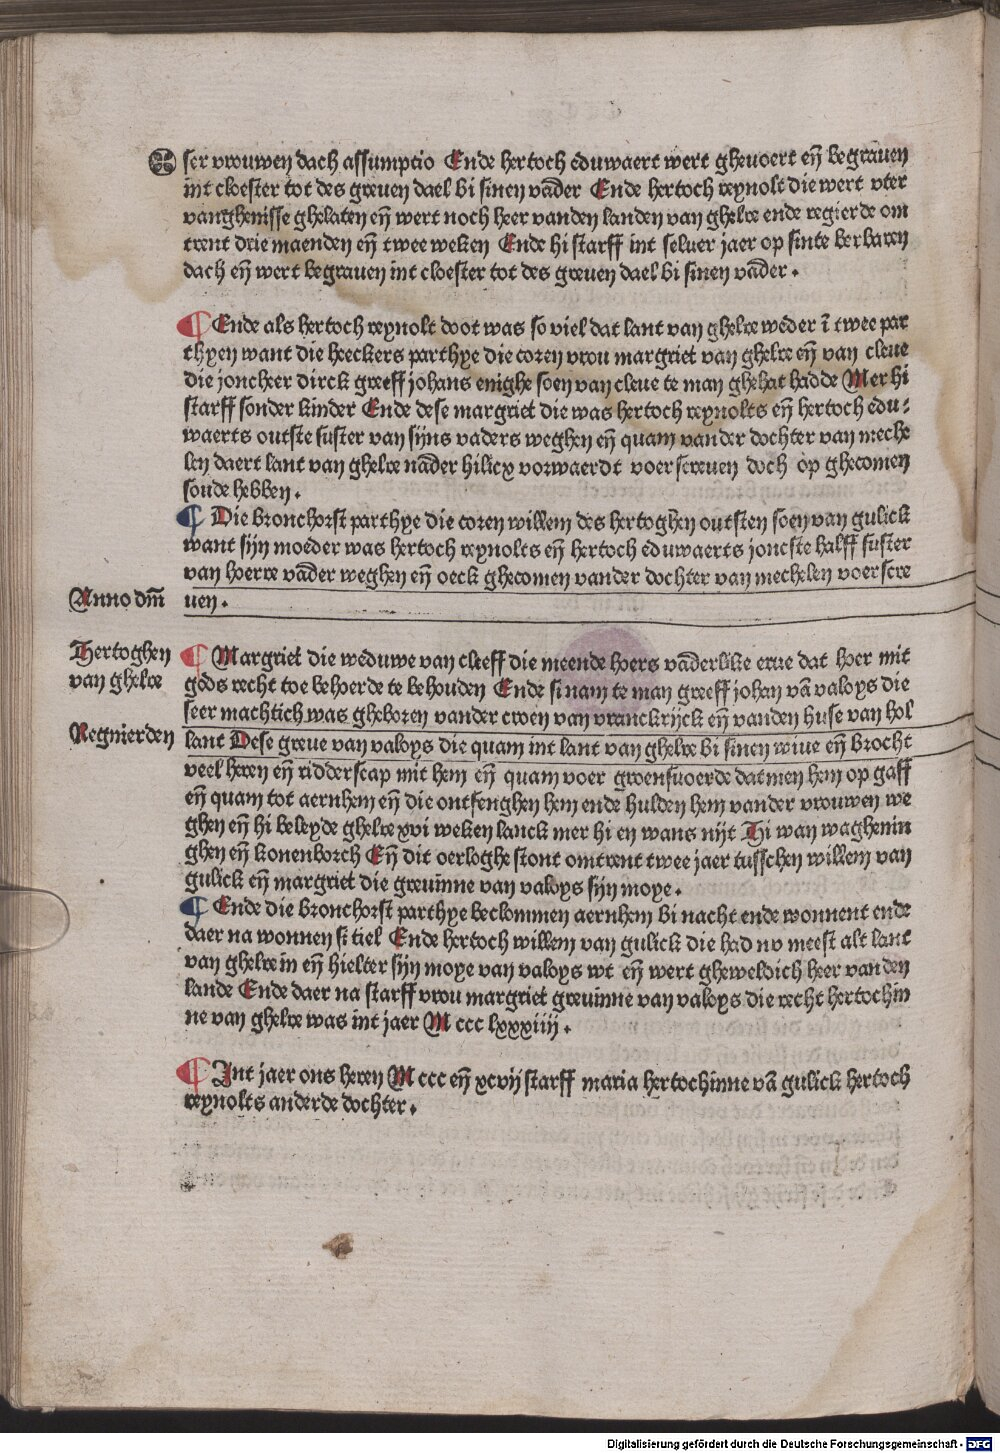 ser vrouwen dach assumptio Ende hertoch eduwaert wert gheuoert eñ begrauen
int cloester tot des greuen dael bi sinen vãder Ende hertoch reynolt die wert vter
vanghenisse ghelaten eñ wert noch heer vanden landen van ghelre ende regierde om
trent drie maenden eñ twee weken Ende hi starff int seluer jaer op sinte berbaren
dach eñ wert begrauen int cloester tot des greuen dael bi sinen vãder.
¶ Ende als hertoch reynolt doot was so viel dat lant van ghelre weder ĩ twee par
thyen want die heeckers parthye die coren vrou margriet van ghelre eñ van cleue
die joncheer dirck greeff johans enighe soen van cleue te man ghehat hadde Mer hi
starff sonder kinder Ende dese margriet die was hertoch reynolts eñ hertoch edu⸗
waerts outste suster van sijns vaders weghen eñ quam vander dochter van meche
len daert lant van ghelre nãder hilicx vorwaerdt voerscreuen doch op ghecomen
soude hebben.
¶ Die bronchorst parthye die coren willem des hertoghen outsten soen van gulick
want sijn moeder was hertoch reynolts eñ hertoch eduwaerts joncste halff suster
van hoerre vãder weghen eñ oeck ghecomen vander dochter van mechelen voerscre
Anno dm̃ uen.
Hertoghen
van ghelre
Regnierden
¶ Margriet die weduwe van cleeff die meende hoers vãderlike erue dat hoer mit
gods recht toe behoerde te behouden Ende si nam te man greeff johan vã valoys die
seer machtich was gheboren vander croen van vranckrijck eñ vanden huse van hol
lant Dese greue van valoys die quam int lant van ghelre bi sinen wiue eñ brocht
veel heren eñ ridderscap mit hem eñ quam voer groensuoerde datmen hem op gaff
eñ quam tot aernhem eñ die ontfenghen hem ende hulden hem vander vrouwen we
ghen eñ hi beleyde ghelre xvi weken lanck mer hi en wans nijt Hi wan waghenin
ghen eñ konenborch Eñ dit oerloghe stont omtrent twee jaer tusschen willem van
gulick eñ margriet die greuinne van valoys sijn moye.
¶ Ende die bronchorst parthye beclommen aernhem bi nacht ende wonnent ende
daer na wonnen si tiel Ende hertoch willem van gulick die had nv meest alt lant
van ghelre in eñ hielter sijn moye van valoys wt eñ wert gheweldich heer vanden
lande Ende daer na starff vrou margriet greuinne van valoys die recht hertochin
ne van ghelre was int jaer M ccc lxxxiiij.
¶ Int jaer ons heren M ccc eñ xcvij starff maria hertochinne vã gulick hertoch
reynolts anderde dochter.
Digitalisierung gefördert durch die Deutsche Forschungsgemeinschaft - DFG